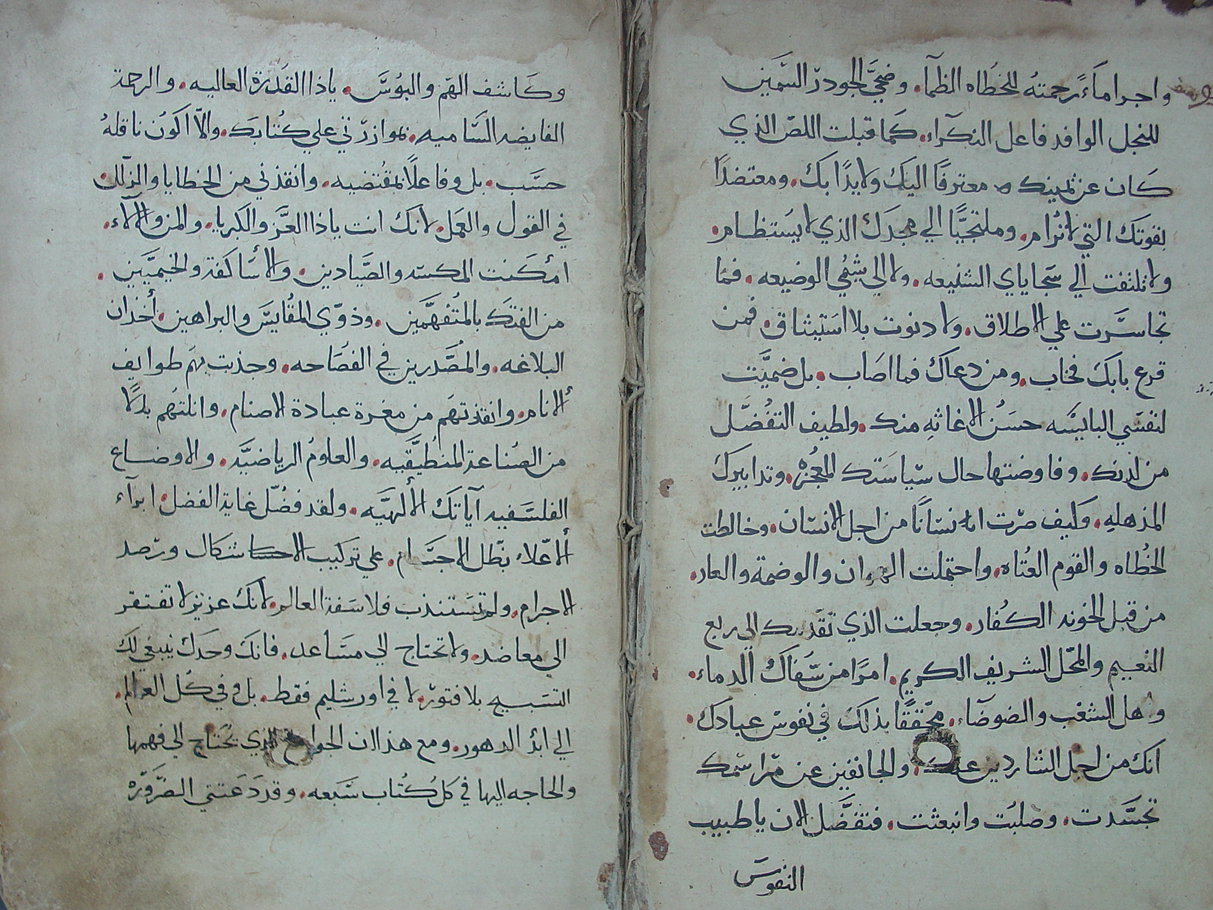 واجراماً رحمته للخطاه الظمآء. وضحّي الجودرّ السَّمين
للنجل الوافد فاعل النكرآء. كما قبلت اللصّ الذي
كان عن يمينك معترفًا اليك ولايذًا بك. ومعتضدًا
بقوتك التي لا تُرام. وملتجيًا الي مجدك الذي لا يستظام.
ولا تلتفت الي سجاياي الشنيعه. ولا الي شيمي الوضيعه. فما
تجاسَّرت علي الاطلاق. ولا دنوت بلا استيثاق. فمن
قرع بابك فخاب. ومن دعاك فما اصاب. بل ضميَّت
لنفسَي البايسَّه حسَن الاغاثه منك. ولطيف التفضّل
من لدنك. وفاوضتها حال سّياسَتك المعجزه. وتدابيرك
المذهله. وكيف صرت انسَانًا من اجل الانسَان. وخالطت
الخطاه والقوم العُتاه. واحتملت الهوان والوضمة والعار.
من قبل الخونه الكُفار. وجعلت الذي تقدمك الي ربع
النعيم والمحّل الشريف الكريم. امرًا من سَّفاك الدماء.
وهل الشغب والضوضآء. محققًا بذلك في نفوسَ عبادك.
انك من اجل الشاردين عنك. والجانفين عن مرّاسَمك
تجسَّدت. وصلبت وانبعثت. فتفضَّل الان يا طبيب
النفوسَ
وكاشف الهمّ والبوُسَّ. ياذا القُدرة العاليه. والرحمة
الفايضه السَّاميه. بموازرتي علي كتابك. والّا اكون ناقله
حسَّب. بل وفاعلًا بمقتضيه. وانقذني من الخطايا والزلل.
في القول والعمل. لانك انت ياذا العزّ والكبريا. والمن والالاء.
امكنت المكسه والصَّيادين. والاسَاكفة والخيميَّين.
من الفتك بالمتُفهَّمين. وذوّي المقُايسَ والبراهين. أخدان
البلاغه. والمصَّدرين في الفصَاحه. وجذبت بهَم طوايف
الانام. وانقذتهَم من مغرة عبادة الاصنام. وانلتهُم بدلًا
من الصناعة المنطيقَّيه. والعلوم الرياضيَّه. والاوضاع
الفلسَفيه آياتك الالهيَّه. ولقد فضُلّ غاية الفضل. ابرآء
الاعّلاء بظّل الاجسَّام. علي تركيب الاشكال ورصد
الاجرام. ولم تسَتنذب فلاسَفة العالم. لانك عزيز لا تفتقر
الي معاضد. ولا تحتاج الي مسَاعد. فانك وحدك ينبغي لك
التسَبيح بلا فتورّ. لا في اورشليم فقط. بل وفي كل العالم.
الي ابد الدهور. ومع هذا ان الجوامع الذي تحتاج الي فهمها
والحاجه اليها في كل كُتاب سَّبعه. وقد دعتني الضرَّورّه